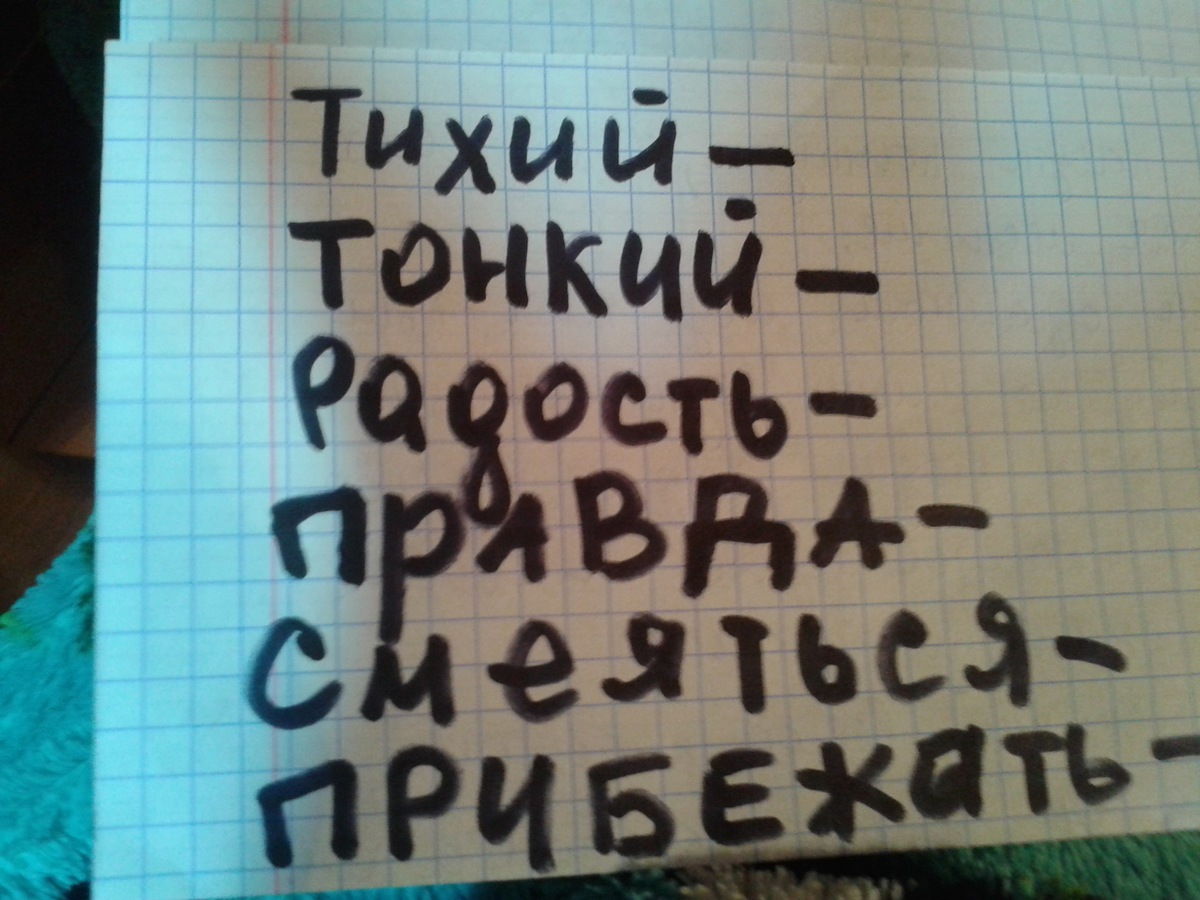 Тихий –
Тонкий –
Радость –
ПРАВДА –
Смеяться –
ПРИБЕЖАТЬ –